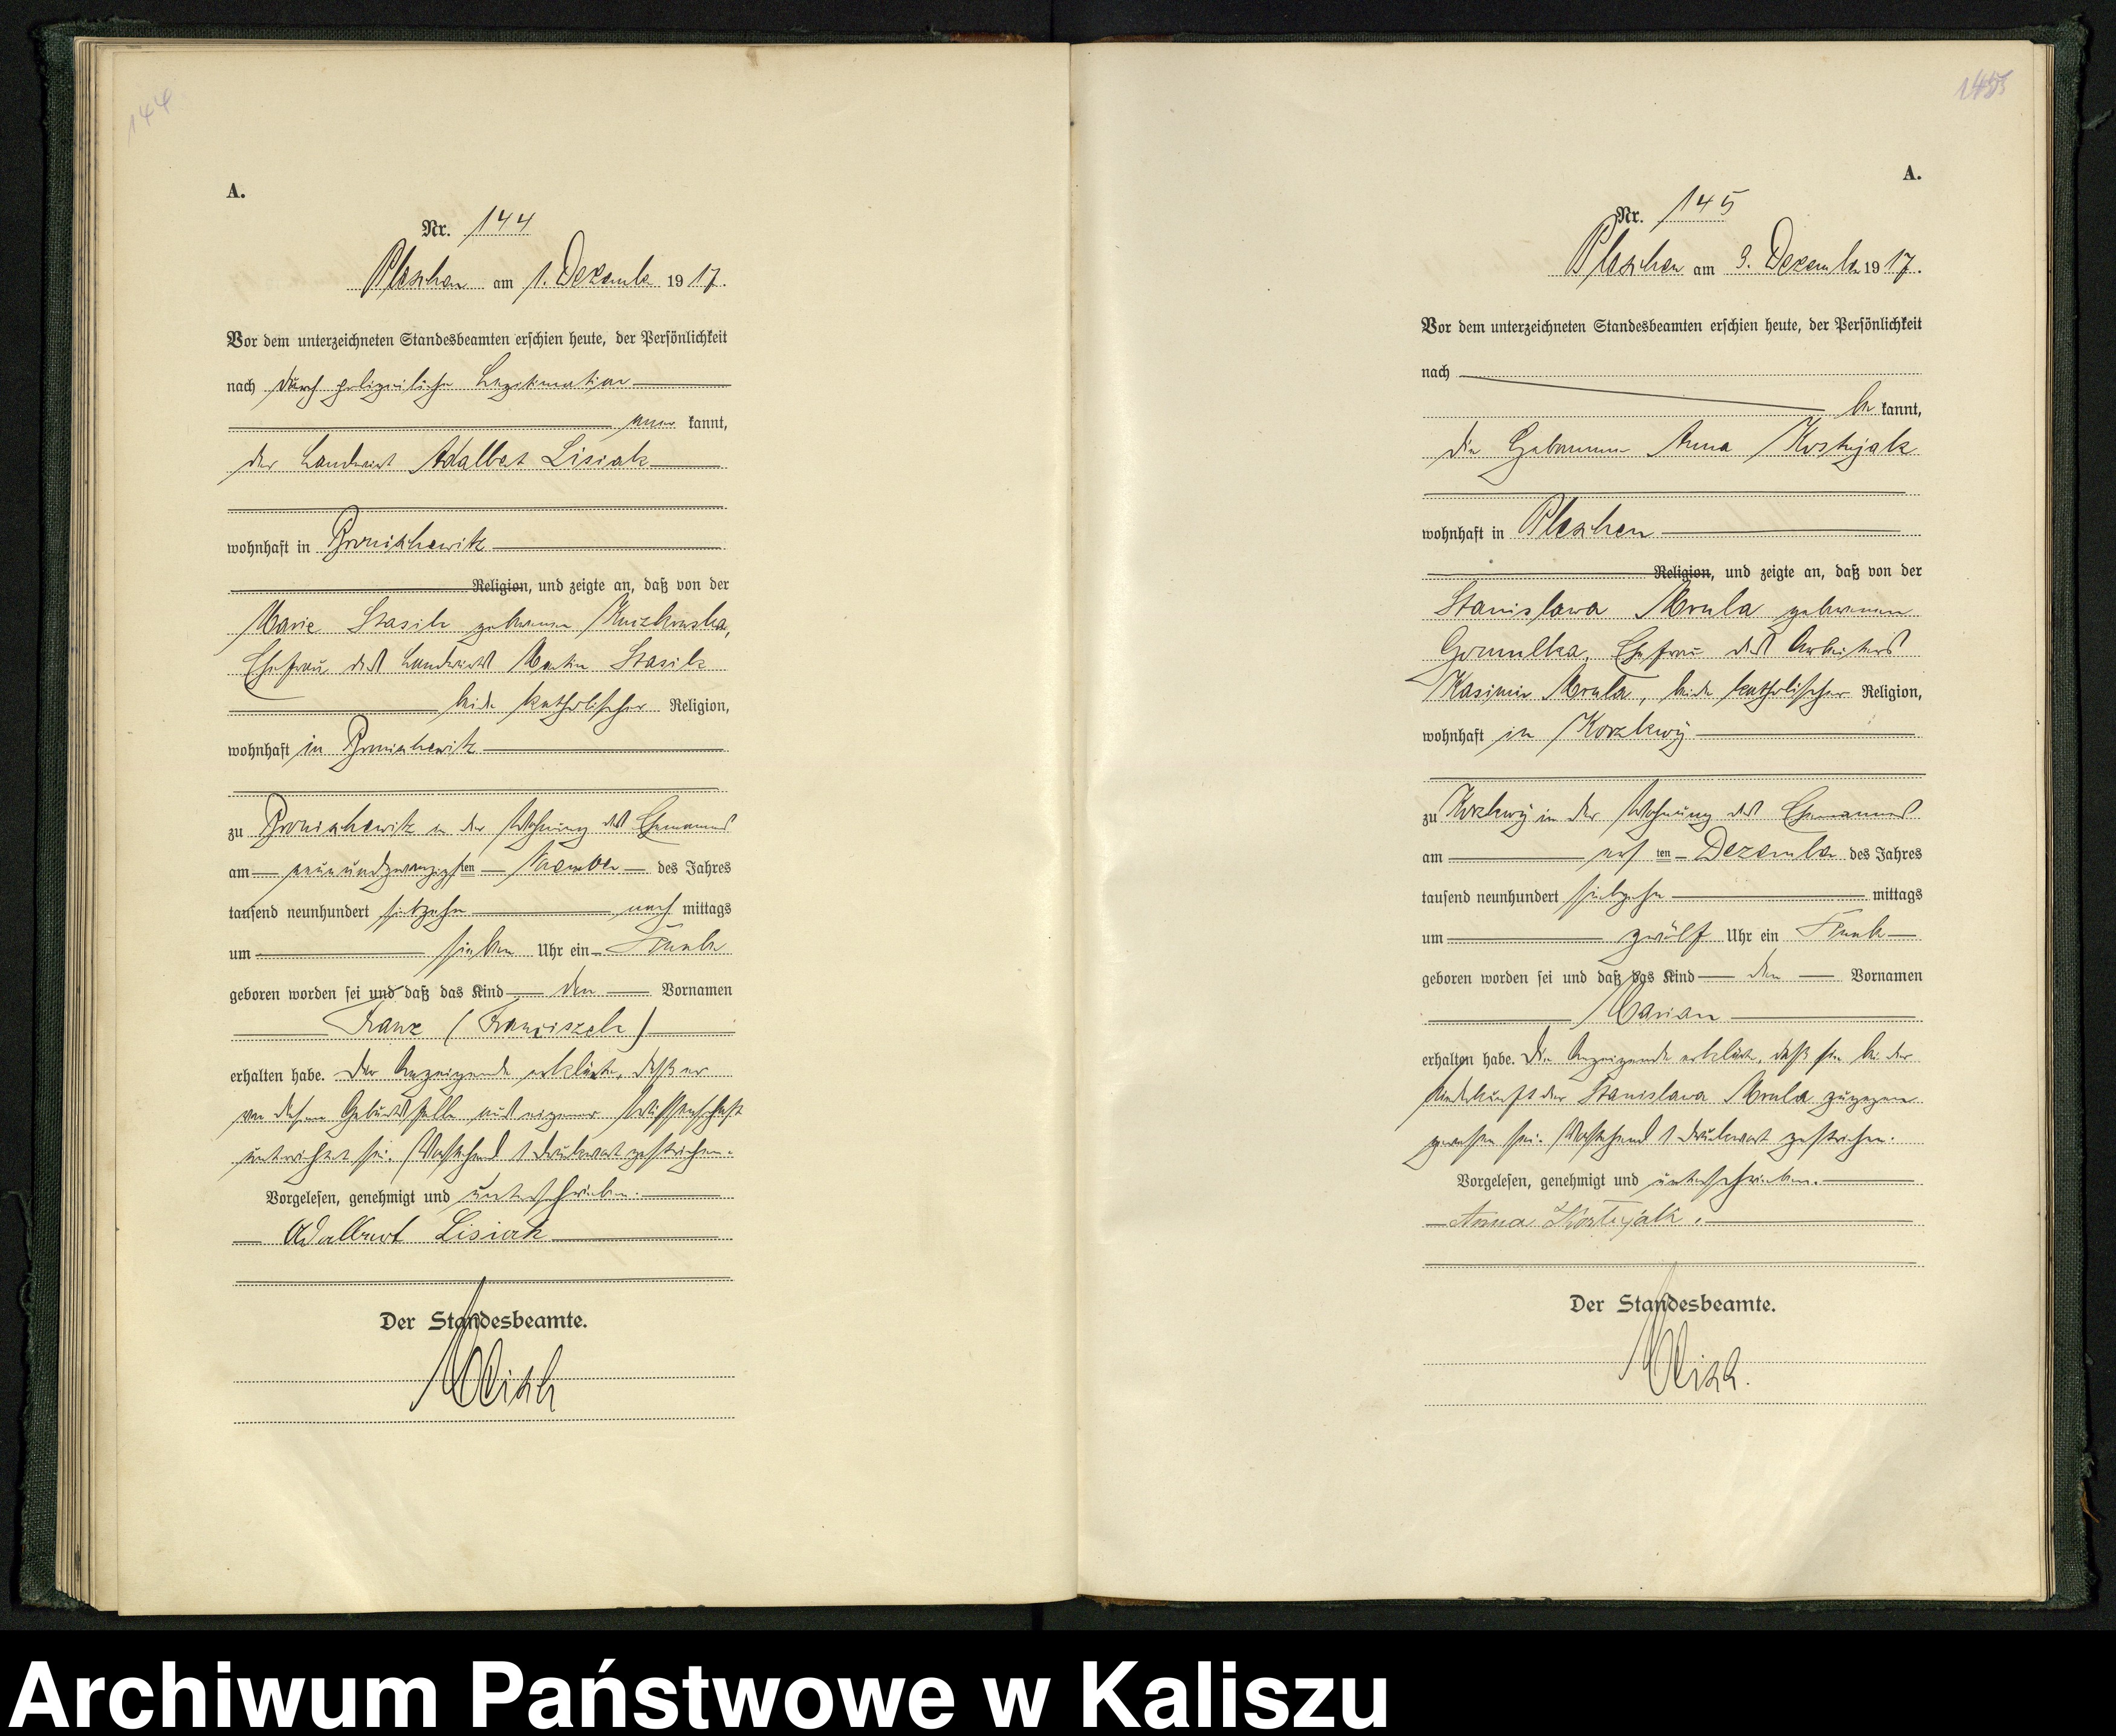 144
A.
Nr. 144
Pleschen am 1. Dezember 1917.
Vor dem unterzeichneten Standesbeamten erschien heute, der Persönlichkeit
nach durch polizeiliche Legitimation
aner kannt,
der Landwirt Adalbert Lisiak
wohnhaft in Bronischewitz
Religion, und zeigte an, daß von der
Marie Stasik geborenen
Ehefrau des Landwirts Martin Stasik
beide katholischer Religion,
wohnhaft in Bronischewitz
zu Bronischewitz in der Wohnung des Ehemannes
am neunundzwanzigsten November des Jahres
tausend neunhundert siebzehn nach mittags
um sieben Uhr ein Knabe
geboren worden sei und daß das Kind den Vornamen
Franz (Franciszek)
erhalten habe. Der Anzeigende erklärte, daß er
von diesem Geburtsfalle aus eigener Wissenschaft
unterrichtet sei. Vorstehend 1 Druckwort gestrichen.
Vorgelesen, genehmigt und unterschrieben.
Adalbert Lisiak
Der Standesbeamte.
145
A.
Nr. 145
Pleschen am 3. Dezember 1917.
Vor dem unterzeichneten Standesbeamten erschien heute, der Persönlichkeit
nach
be kannt,
die Hebamme Anna Kostujak
wohnhaft in Pleschen
Religion, und zeigte an, daß von der
Stanislawa Mrula geborenen
Gomulka, Ehefrau des Arbeiters
Kasimir Mrula, beide katholischer Religion,
wohnhaft in Korzkwy
zu Korzkwy in der Wohnung des Ehemannes
am ersten Dezember des Jahres
tausend neunhundert siebzehn mittags
um zwölf Uhr ein Knabe
geboren worden sei und daß das Kind den Vornamen
Marian
erhalten habe. Die Anzeigende erklärte, daß sie bei der
Niederkunft der Stanislawa Mrula zugegen
gewesen sei. Vorstehend 1 Druckwort gestrichen.
Vorgelesen, genehmigt und unterschrieben.
Anna Kostujak.
Der Standesbeamte.
Archiwum Państwowe w Kaliszu